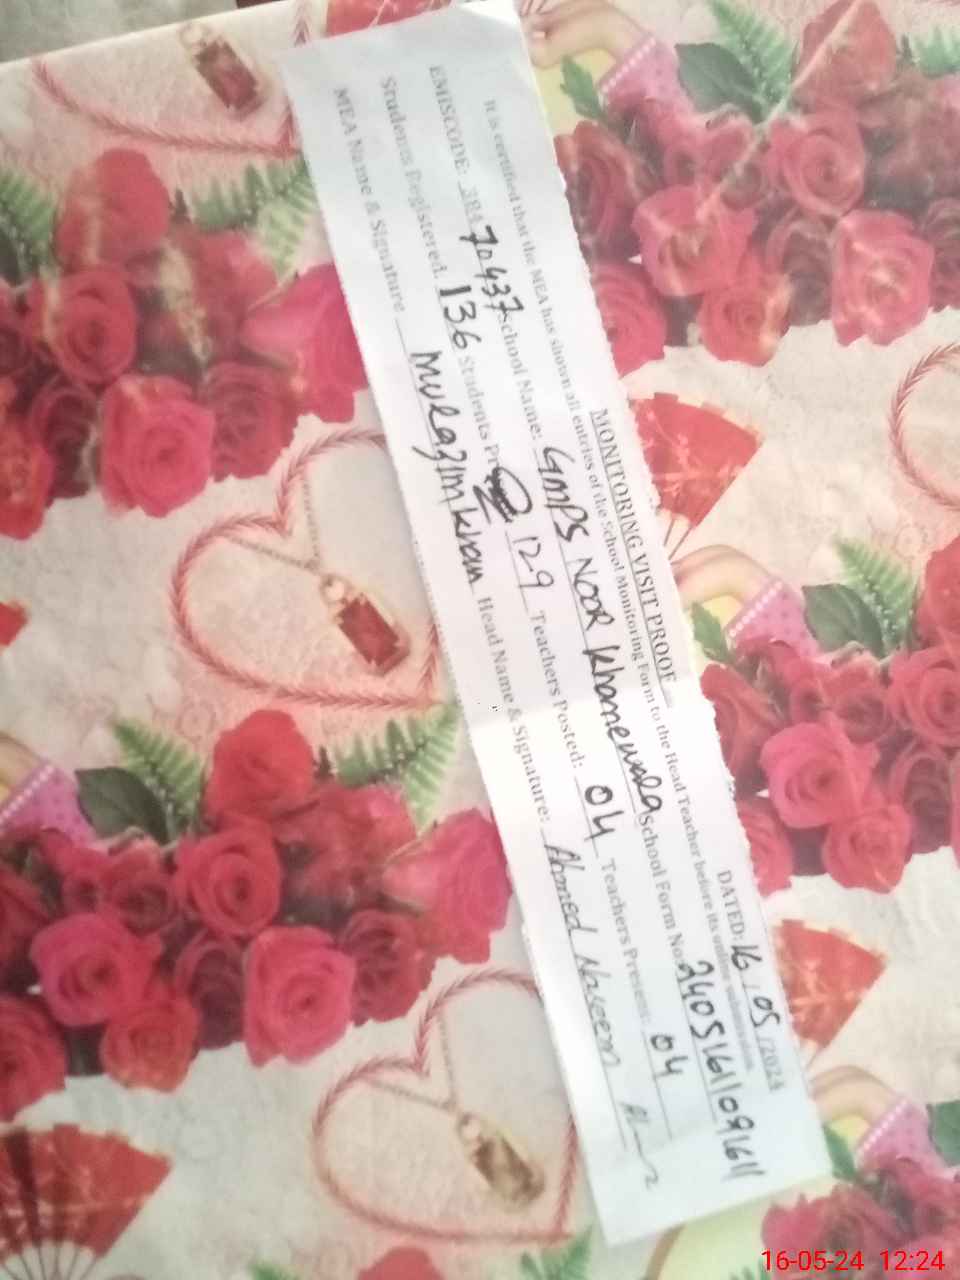 MONITORING VISIT PROOF DATED: 16 . 05 /2024
It is certified that the MEA has shown all entries of the School Monitoring Form to the Head Teacher before its online submission.
EMISCODE: 38470437 School Name: GMPS NOOR Khanewala School Form No: 24051611091611
Students Registered: 136 Students Pr 129 Teachers Posted: 04 Teachers Present: 04
MEA Name & Signature Mulazim Khan Head Name & Signature: Ahmed Naseem
16-05-24 12:24